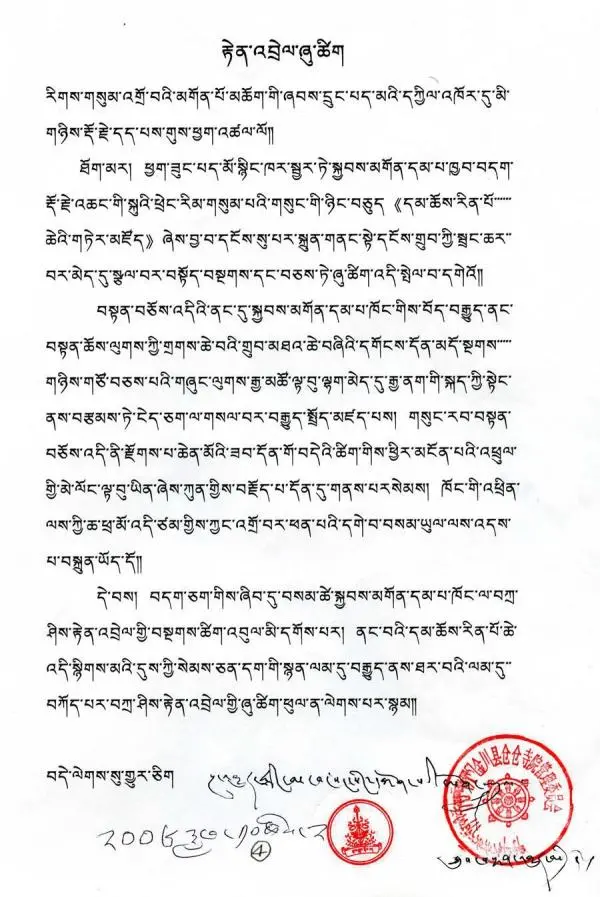 རྟེན་འབྲེལ་ཞུ་ཚིག
རིགས་གསུམ་འགྲོ་བའི་མགོན་པོ་མཆོག་གི་ཞབས་དྲུང་པད་མའི་དཀྱིལ་འཁོར་དུ་མི་
གཉིས་རྡོ་རྗེ་དད་པས་གུས་ཕྱག་འཚལ་ལོ།།
ཐོག་མར། ཕྱག་ཟུང་པད་མོ་སྙིང་ཁར་སྦྱར་ཏེ་སྐྱབས་མགོན་དམ་པ་ཁྱབ་བདག་
རྡོ་རྗེ་འཆང་གི་སྐུའི་ཕྲེང་རིམ་གསུམ་པའི་གསུང་གི་ཉིང་བཅུད 《དམ་ཆོས་རིན་པོ་
ཆེའི་གཏེར་མཛོད》 ཞེས་བྱ་བ་དངོས་སུ་པར་སྐྲུན་གནང་སྟེ་དངོས་གྲུབ་ཀྱི་སྦྲང་ཆར་
བར་མེད་དུ་སྩལ་བར་བསྟོད་བསྔགས་དང་བཅས་ཏེ་ཞུ་ཚིག་འདི་སྤེལ་བ་དགེའོ།།
བསྟན་བཅོས་འདིའི་ནང་དུ་སྐྱབས་མགོན་དམ་པ་ཁོང་གིས་བོད་བརྒྱུད་ནང་
བསྟན་ཆོས་ལུགས་ཀྱི་གྲགས་ཆེ་བའི་གྲུབ་མཐའ་ཆེ་བཞིའི་དགོངས་དོན་མདོ་སྔགས་
གཉིས་གཙོ་བཅས་པའི་གཞུང་ལུགས་རྒྱ་མཚོ་ལྟ་བུ་ལྷག་མེད་དུ་རྒྱ་ནག་གི་སྐད་ཀྱི་སྟེང་
ནས་བརྩམས་ཏེ་ངེད་ཅག་ལ་གསལ་བར་བརྒྱུད་སྤྲོད་མཛད་པས། གསུང་རབ་བསྟན་
བཅོས་འདི་ནི་རྫོགས་པ་ཆེན་མོའི་ཟབ་དོན་གོ་བདེའི་ཚིག་གིས་ཕྱིར་མངོན་པའི་འཕྲུལ་
གྱི་མེ་ལོང་ལྟ་བུ་ཡིན་ཞེས་ཀུན་གྱིས་བརྗོད་པ་དོན་དུ་གནས་པར་སེམས། ཁོང་གི་འཕྲིན་
ལས་ཀྱི་ཆ་ཕྲ་མོ་འདི་ཙམ་གྱིས་ཀྱང་འགྲོ་བར་ཕན་པའི་དགེ་བ་བསམ་ཡུལ་ལས་འདས་
པ་བསྐྲུན་ཡོད་དོ།།
དེ་བས། བདག་ཅག་གིས་ཞིབ་ཏུ་བསམ་ཚེ་སྐྱབས་མགོན་དམ་པ་ཁོང་ལ་བཀྲ་
ཤིས་རྟེན་འབྲེལ་གྱི་བསྔགས་ཚིག་འབུལ་མི་དགོས་པར། ནང་བའི་དམ་ཆོས་རིན་པོ་ཆེ་
འདི་སྙིགས་མའི་དུས་ཀྱི་སེམས་ཅན་དག་གི་སྙན་ལམ་དུ་བརྒྱུད་ནས་ཐར་བའི་ལམ་དུ་
བཀོད་པར་བཀྲ་ཤིས་རྟེན་འབྲེལ་གྱི་ཞུ་ཚིག་ཕུལ་ན་ལེགས་པར་སྙམ།།
བདེ་ལེགས་སུ་གྱུར་ཅིག
④